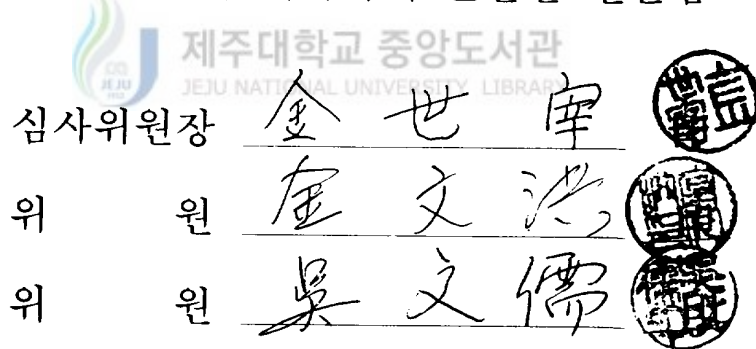 제주대학교 중앙도서관
JEJU NATIONAL UNIVERSITY LIBRARY
심사위원장 金 世 宰
위 원 金 文 洪
위 원 吳 文 儒